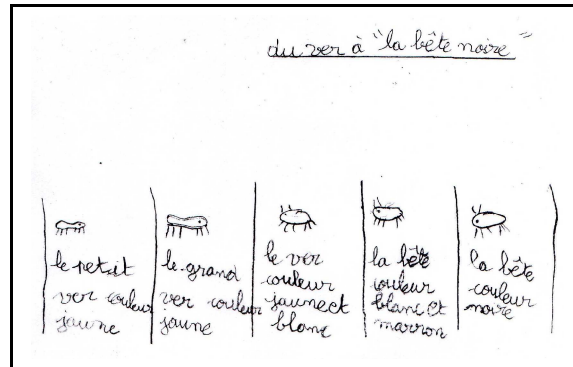 du ver à "la bête noire"
le petit
ver couleur
jaune
le grand
ver couleur
jaune
le ver
couleur
jaune et
blanc
la bête
couleur
blanc et
marron
la bête
couleur
noire